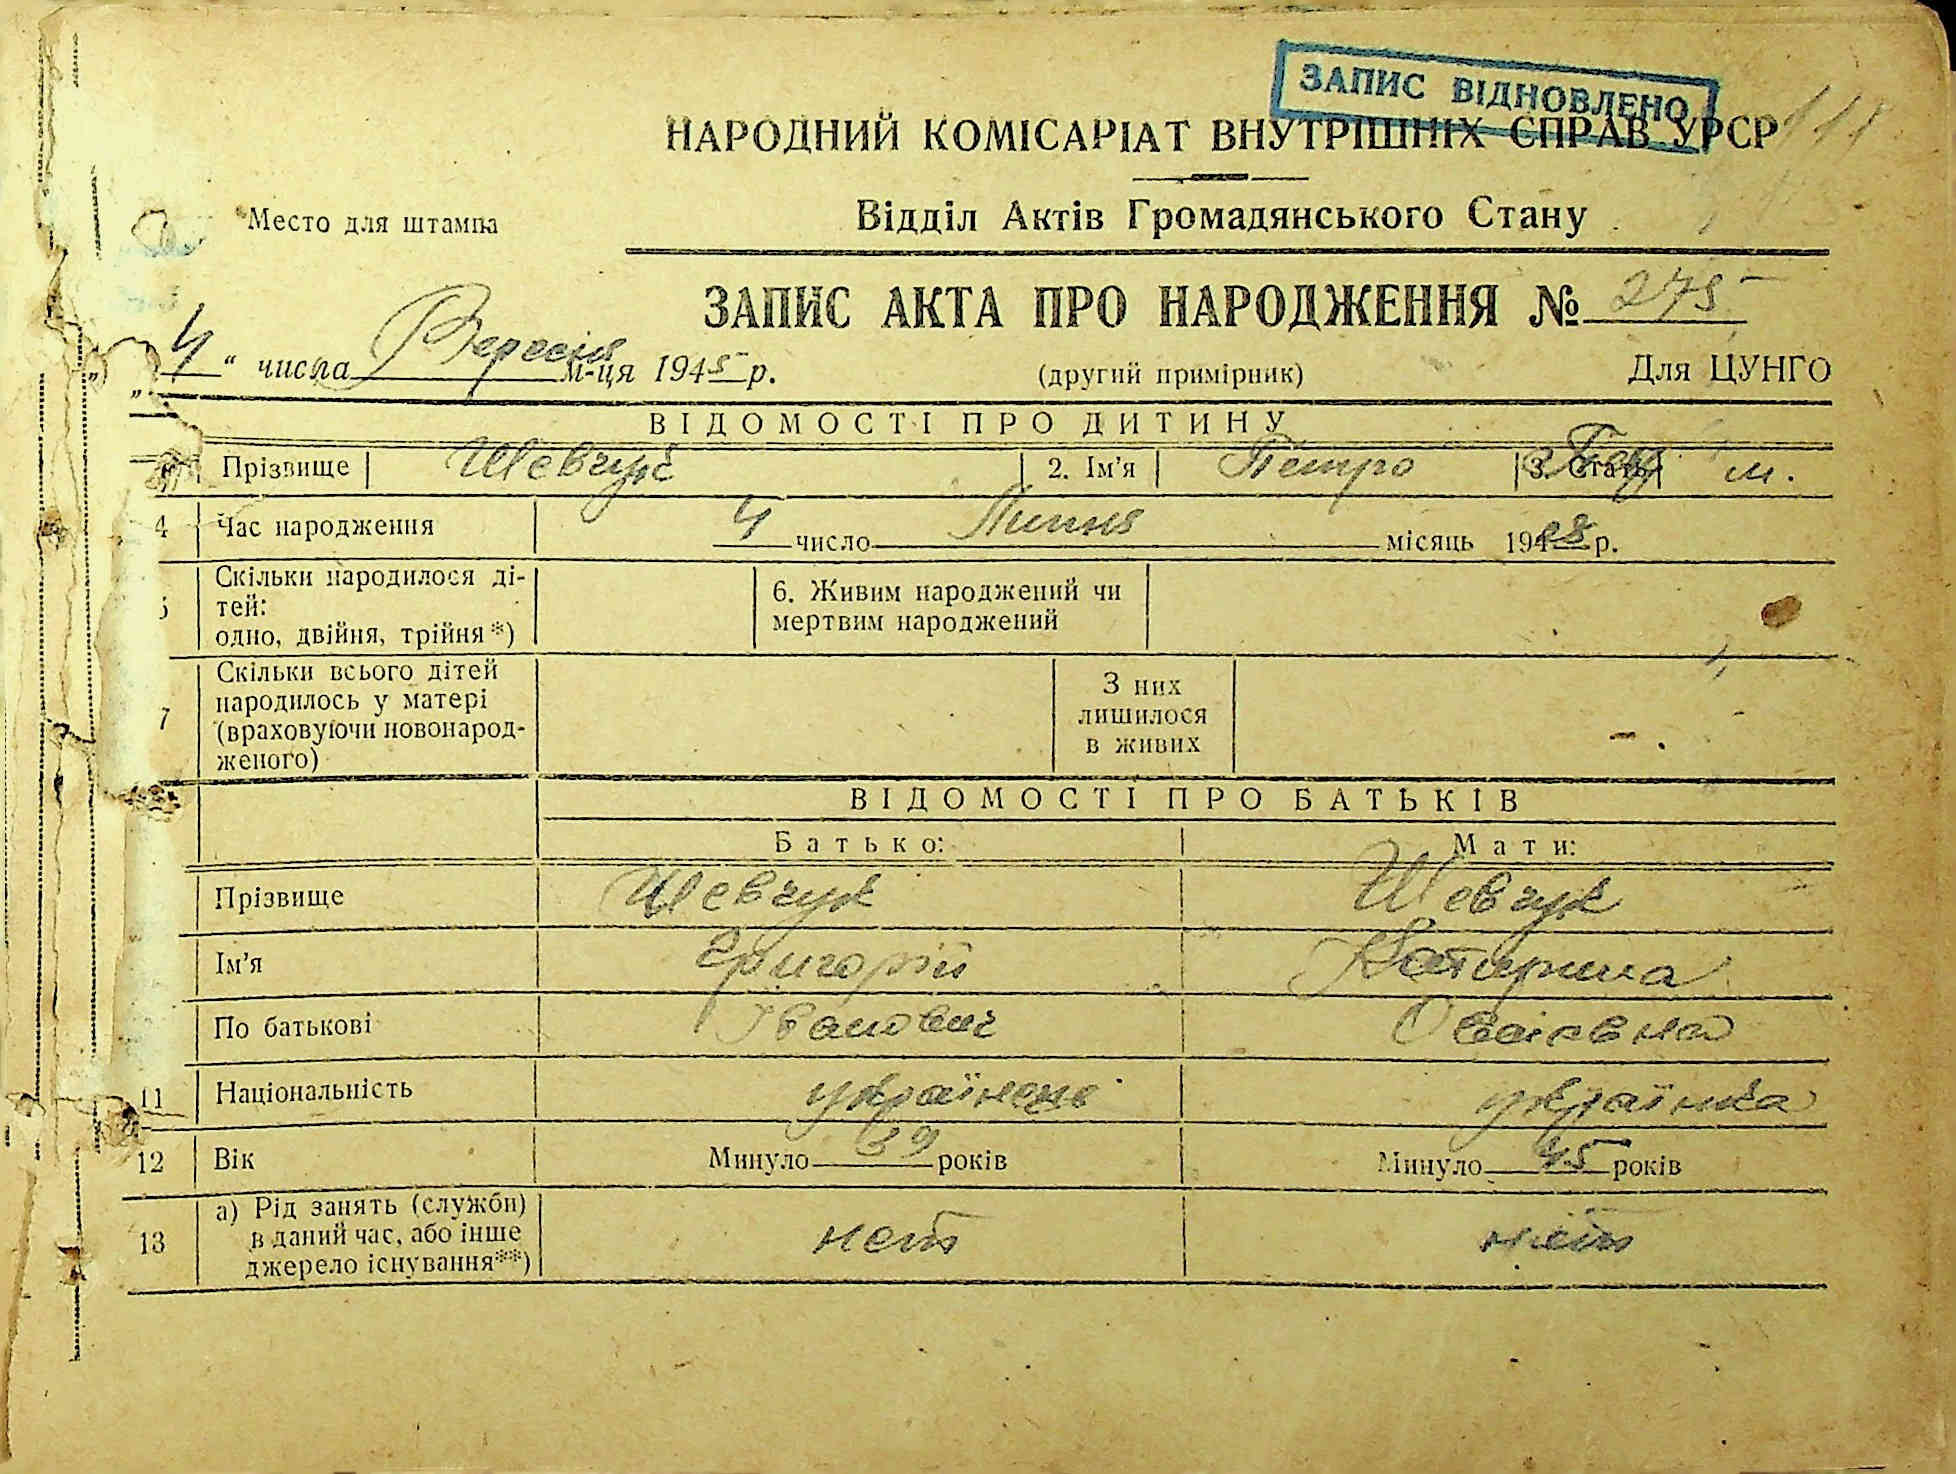 ЗАПИС ВІДНОВЛЕНО
НАРОДНИЙ КОМІСАРІАТ ВНУТРІШНІХ СПРАВ УРСР
Место для штампа
Відділ Актів Громадянського Стану
ЗАПИС АКТА ПРО НАРОДЖЕННЯ № 275
„ 4 “ числа Вересня м-ця 1945 р.
(другий примірник)
Для ЦУНГО
ВІДОМОСТІ ПРО ДИТИНУ
Прізвище Шевчук 2. Ім'я Петро 3. Стать м.
4 Час народження 4 число Липня місяць 19 28 р.
5 Скільки народилося ді-
тей:
одно, двійня, трійня*)
6. Живим народжений чи
мертвим народжений
7 Скільки всього дітей
народилось у матері
(враховуючи новонарод-
женого)
З них
лишилося
в живих
ВІДОМОСТІ ПРО БАТЬКІВ
Батько: Мати:
Прізвище Шевчук Шевчук
Ім'я Григорій Катирина
По батькові Іванович
11 Національність українець українка
12 Вік Минуло 39 років Минуло 45 років
13 а) Рід занять (служби)
в даний час, або інше
джерело існування**)
нет нет